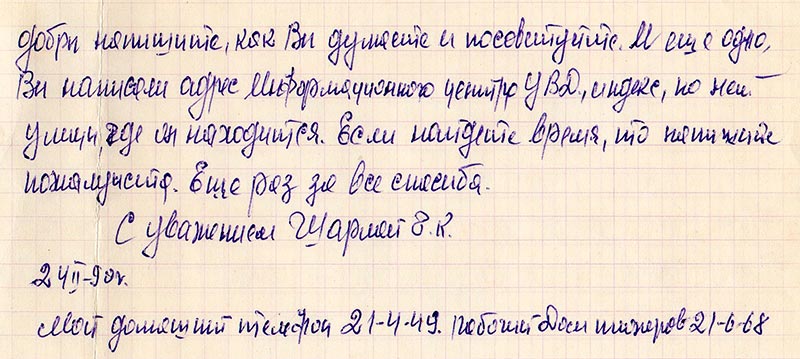 добры напишите, как Вы думаете и посоветуйте. И еще одно,
Вы написали адрес Информационного центра УВД, индекс, но нет
улицы, где он находится. Если найдете время, то напишите
пожалуйста. Еще раз за все спасиба.
С уважением Шармай Е.К.
24 II-90г.
Мой домашний телефон 21-4-49. рабочий Дом пионеров 21-6-68